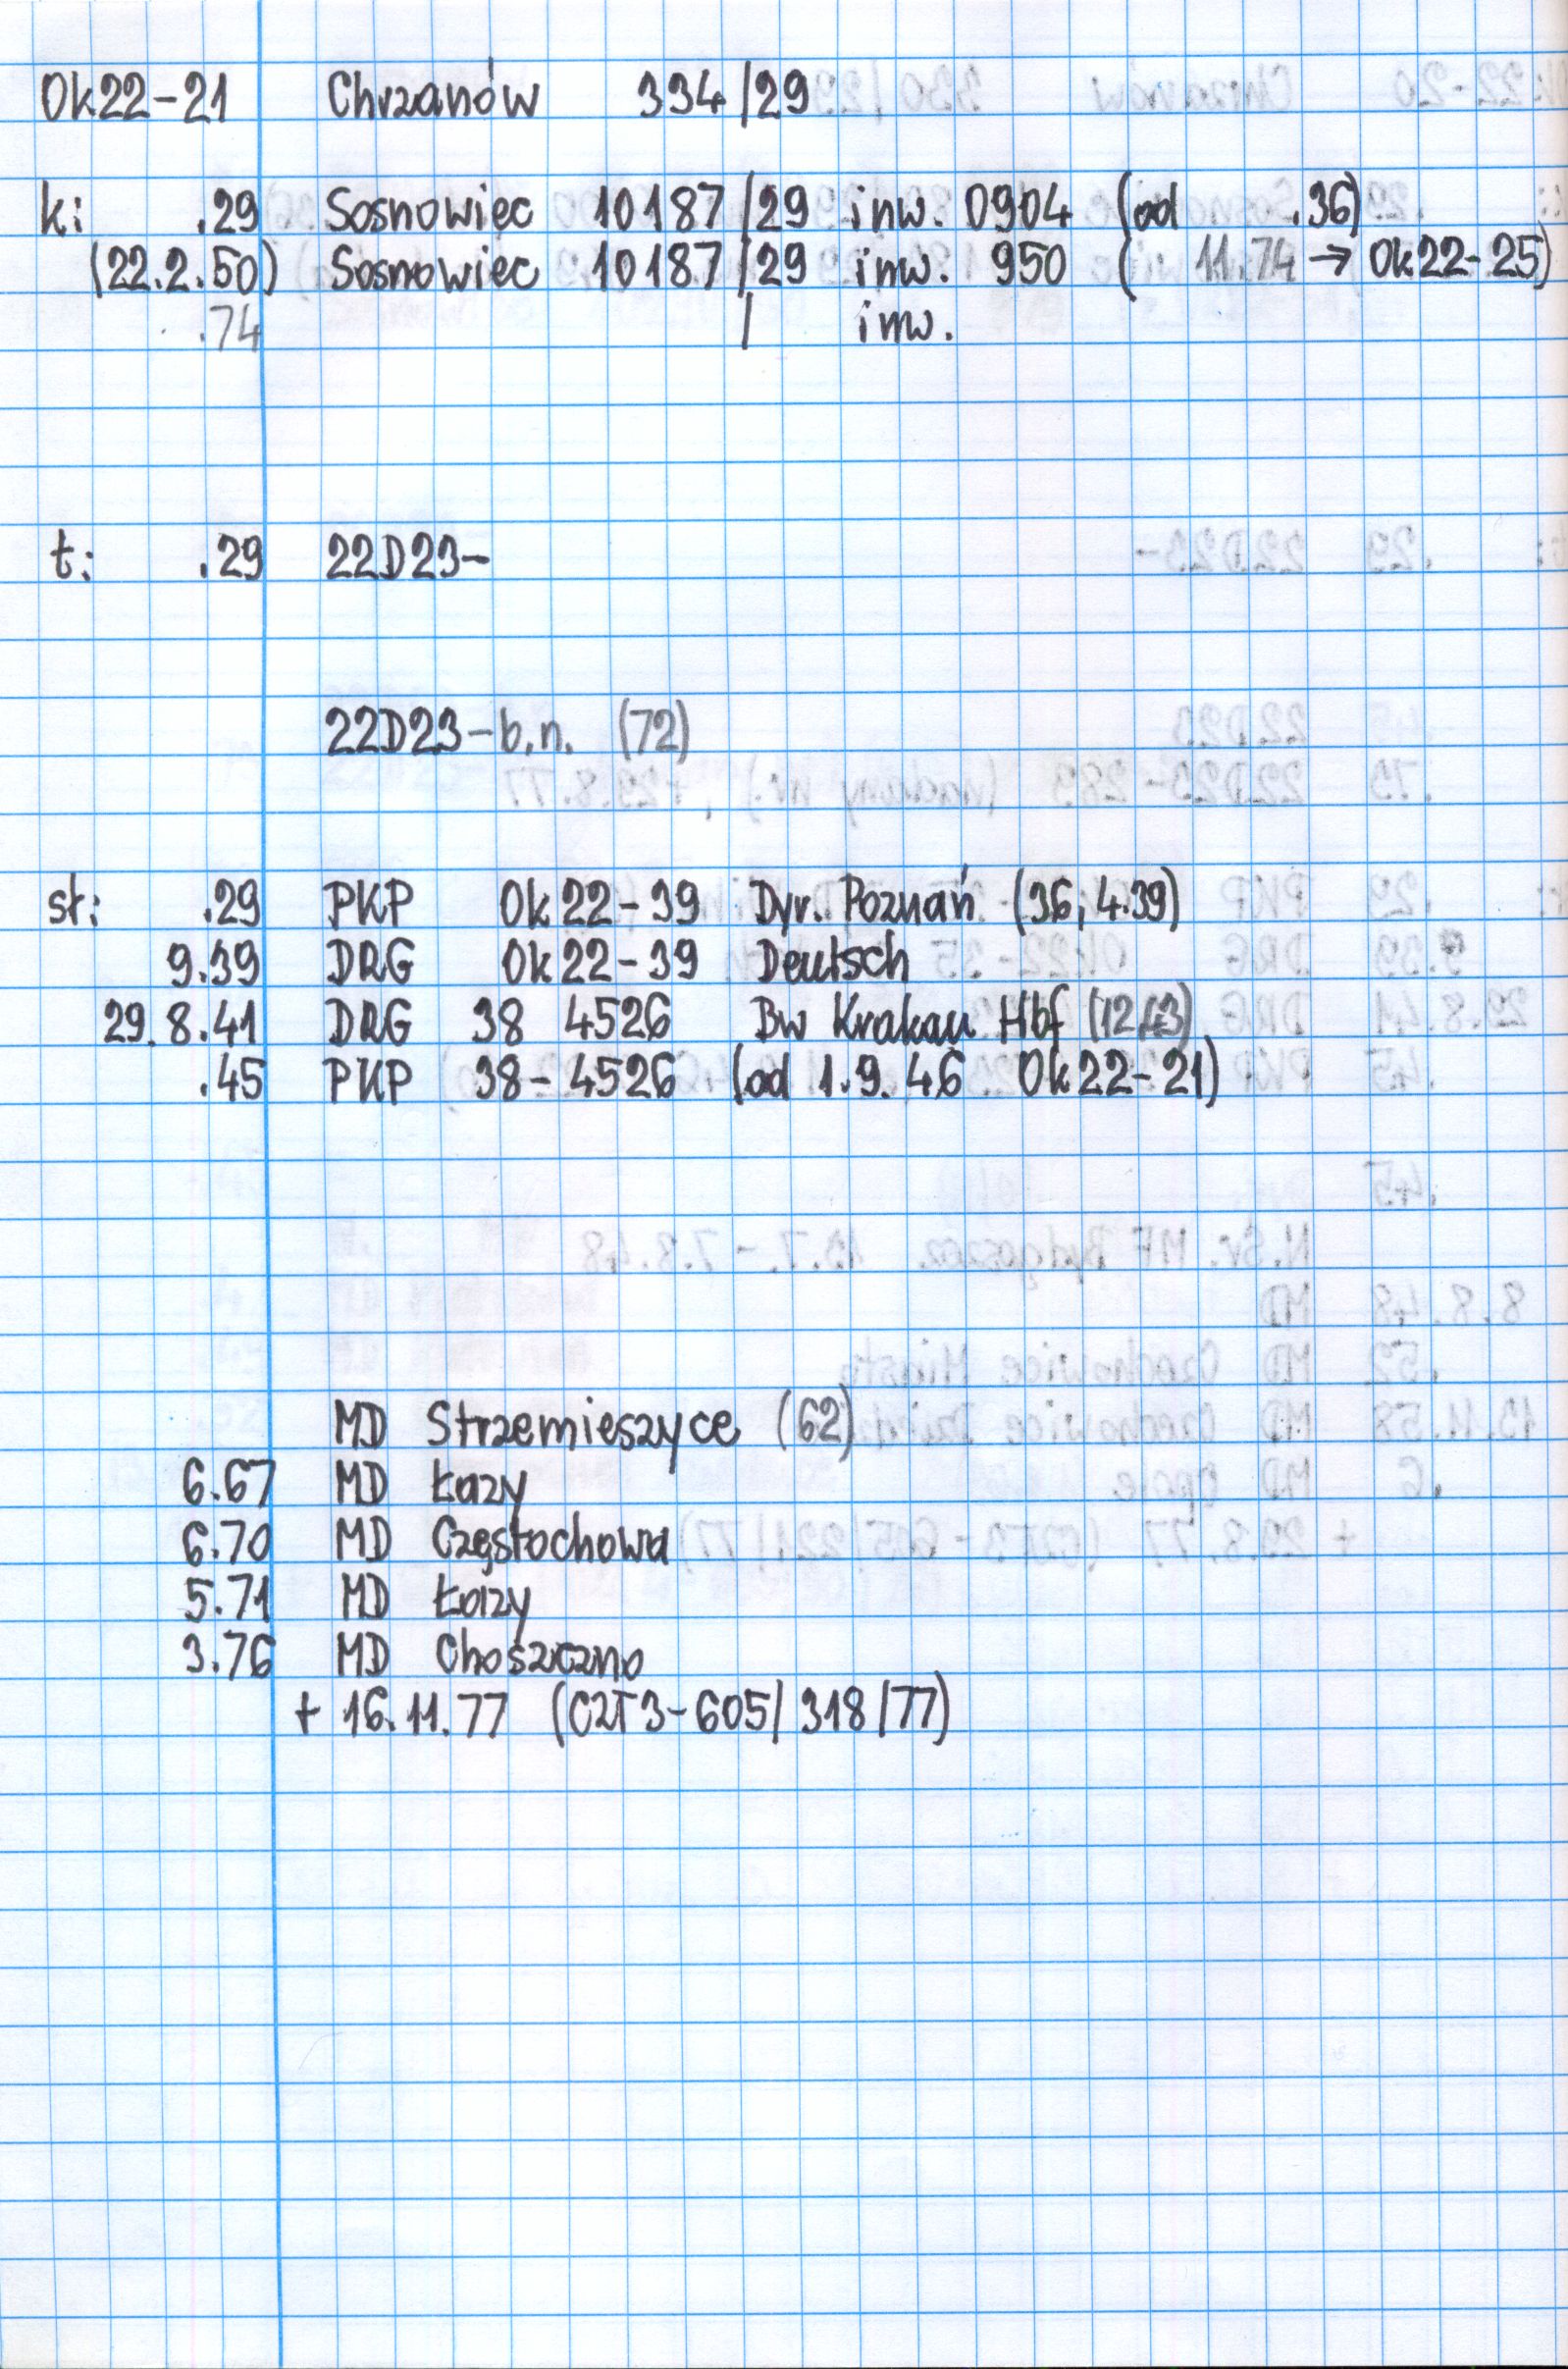 Ok22-21 Chrzanów 334/29
k: .29 Sosnowiec 10187/29 inw. 0904 (od .36)
(22.2.50) Sosnowiec 10187/29 inw. 950 ( 11.74 → Ok22-25)
.74 / inw.
t: .29 22D23-
22D23-b.n. (72)
st: .29 PKP Ok22-39 Dyr. Poznań (36, 4.39)
9.39 DRG Ok22-39 Deutsch
29.8.41 DRG 38 4526 Bw Krakau Hbf (12.43)
.45 PKP 38-4526 (od 1.9.46 Ok22-21)
MD Strzemieszyce (62)
6.67 MD Łazy
6.70 MD Częstochowa
5.71 MD Łazy
3.76 MD Choszczno
+ 16.11.77 (CZT3-605/318/77)